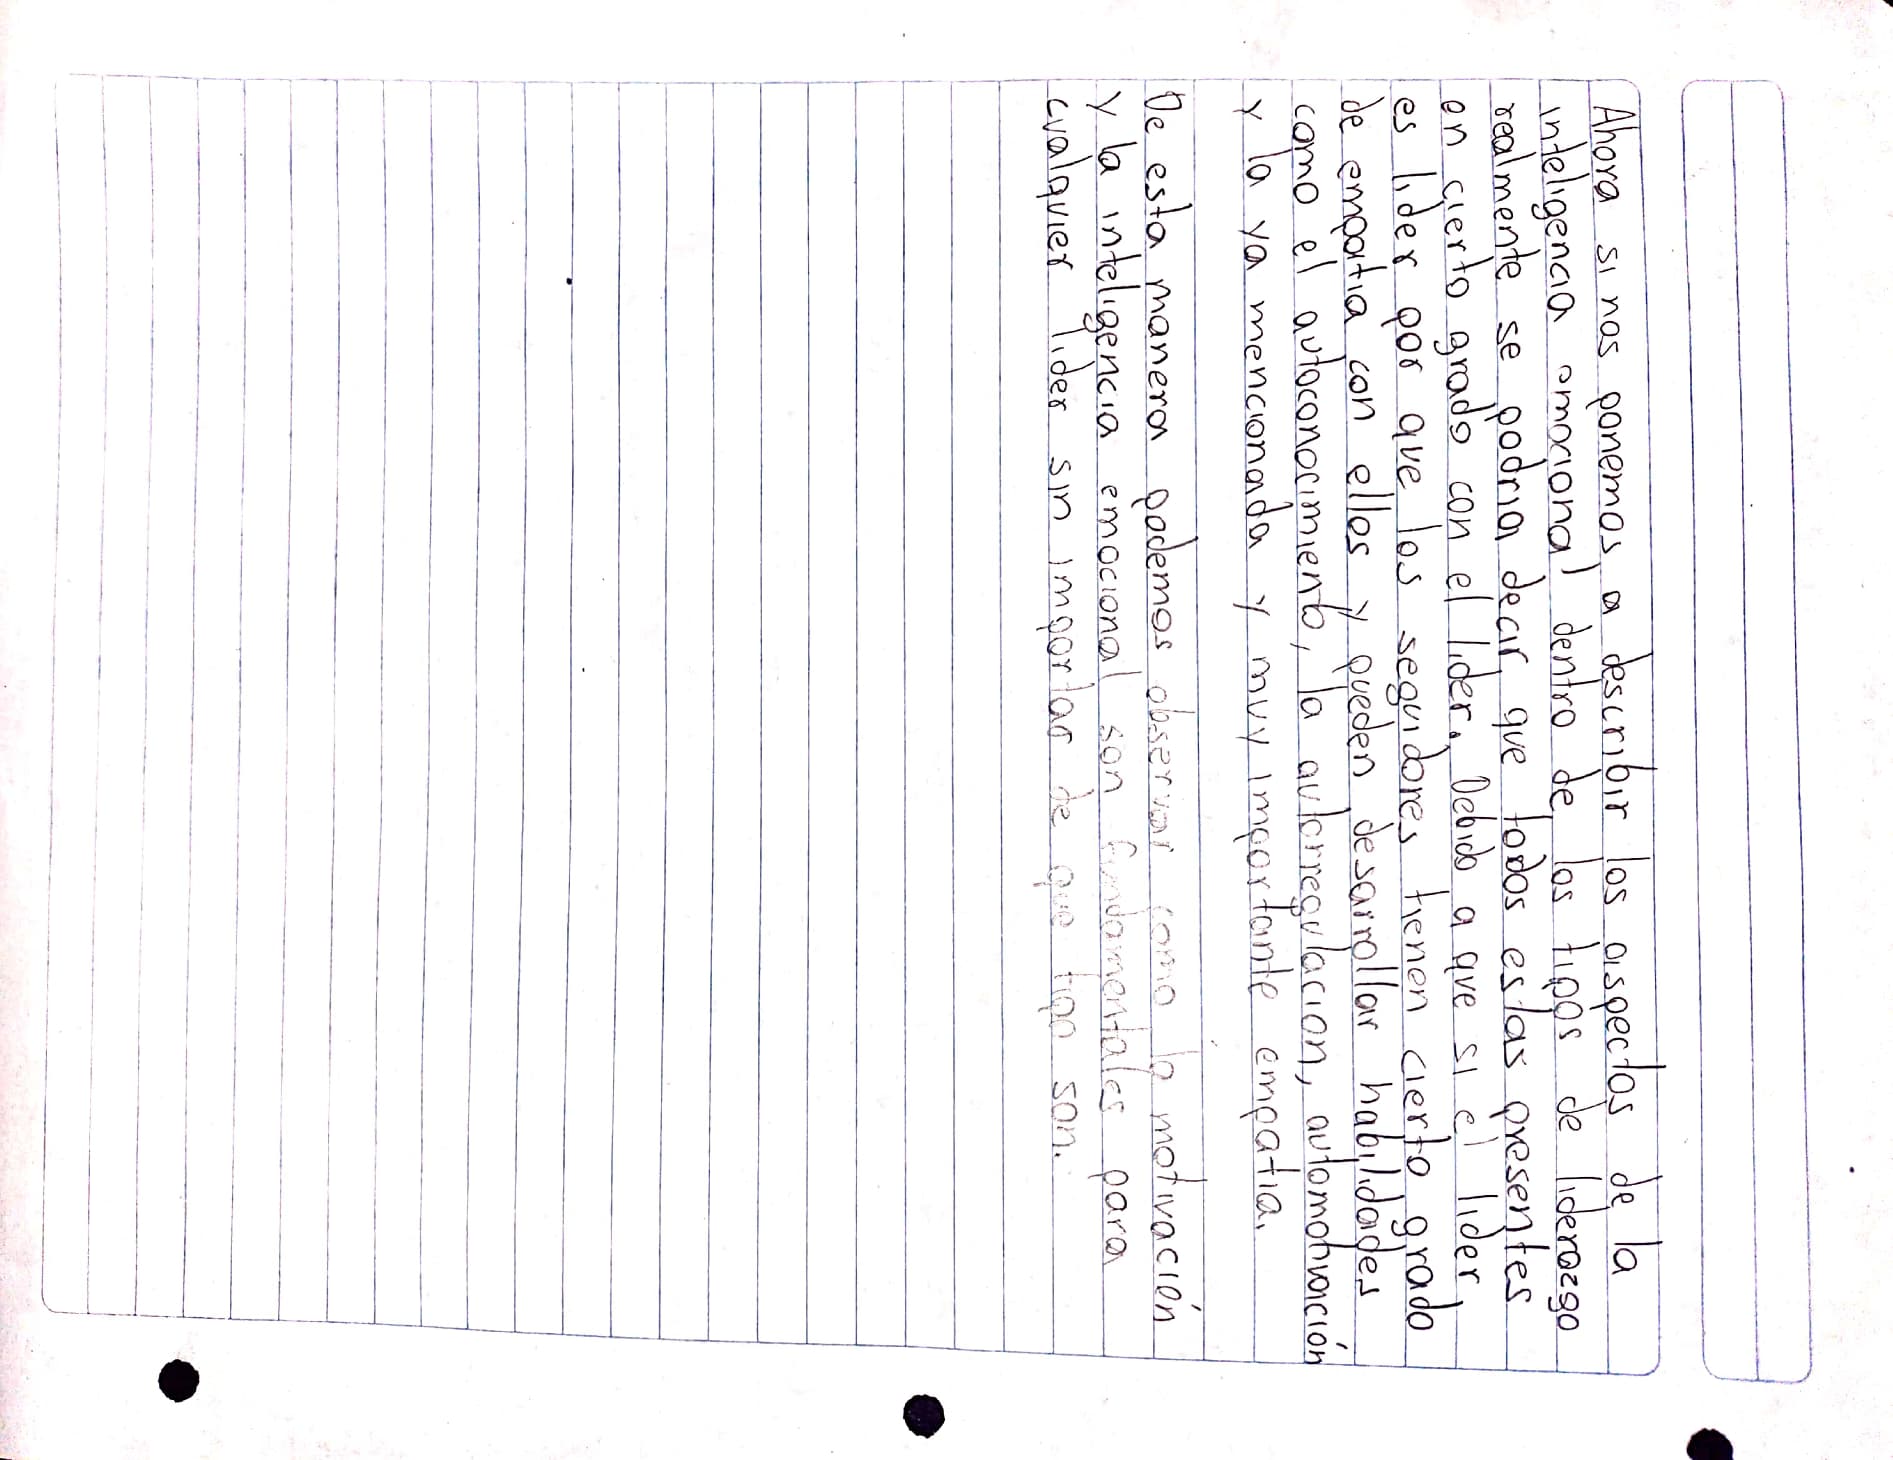 Ahora si nos ponemos a describir los aspectos de la
inteligencia emocional dentro de los tipos de liderazgo
realmente se podria decir que todos estas presentes
en cierto grado con el lider. Debido a que si el lider
es lider por que los seguidores tienen cierto grado
de empatia con ellos y pueden desarrollar habilidades
como el autoconocimiento, la autorregulacion, automotivación
y la ya mencionada y muy importante empatia.
De esta manera podemos observar como la motivación
y la inteligencia emocional son fundamentales para
cualquier lider sin importar de que tipo son.